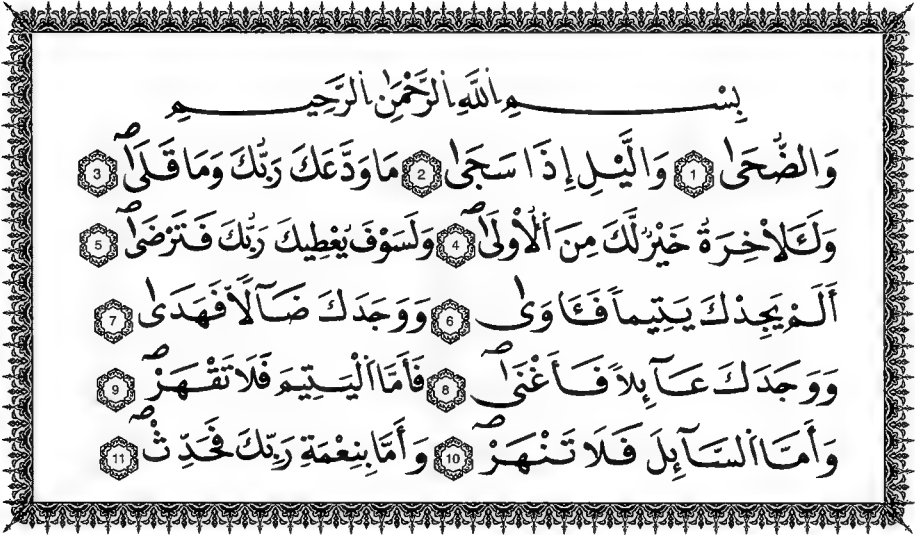 بِسْمِ اللَّهِ الرَّحْمَٰنِ الرَّحِيمِ
وَالضُّحَىٰ 1 وَالَّيْلِ إِذَا سَجَىٰ 2 مَا وَدَّعَكَ رَبُّكَ وَمَا قَلَىٰ 3
وَلَلَاْخِرَةُ خَيْرٌ لَّكَ مِنَ اَلُاْولَىٰ 4 وَلَسَوْفَ يُعْطِيكَ رَبُّكَ فَتَرْضَىٰ 5
أَلَمْ يَجِدْكَ يَتِيماً فَـَٔاوَىٰ 6 وَوَجَدَكَ ضَآلّاً فَهَدَىٰ 7
وَوَجَدَكَ عَآئِلاً فَأَغْنَىٰ 8 فَأَمَّا اَلْيَتِيمَ فَلَا تَقْهَرْ 9
وَأَمَّا اَلسَّآئِلَ فَلَا تَنْهَرْ 10 وَأَمَّا بِنِعْمَةِ رَبِّكَ فَحَدِّثْ 11